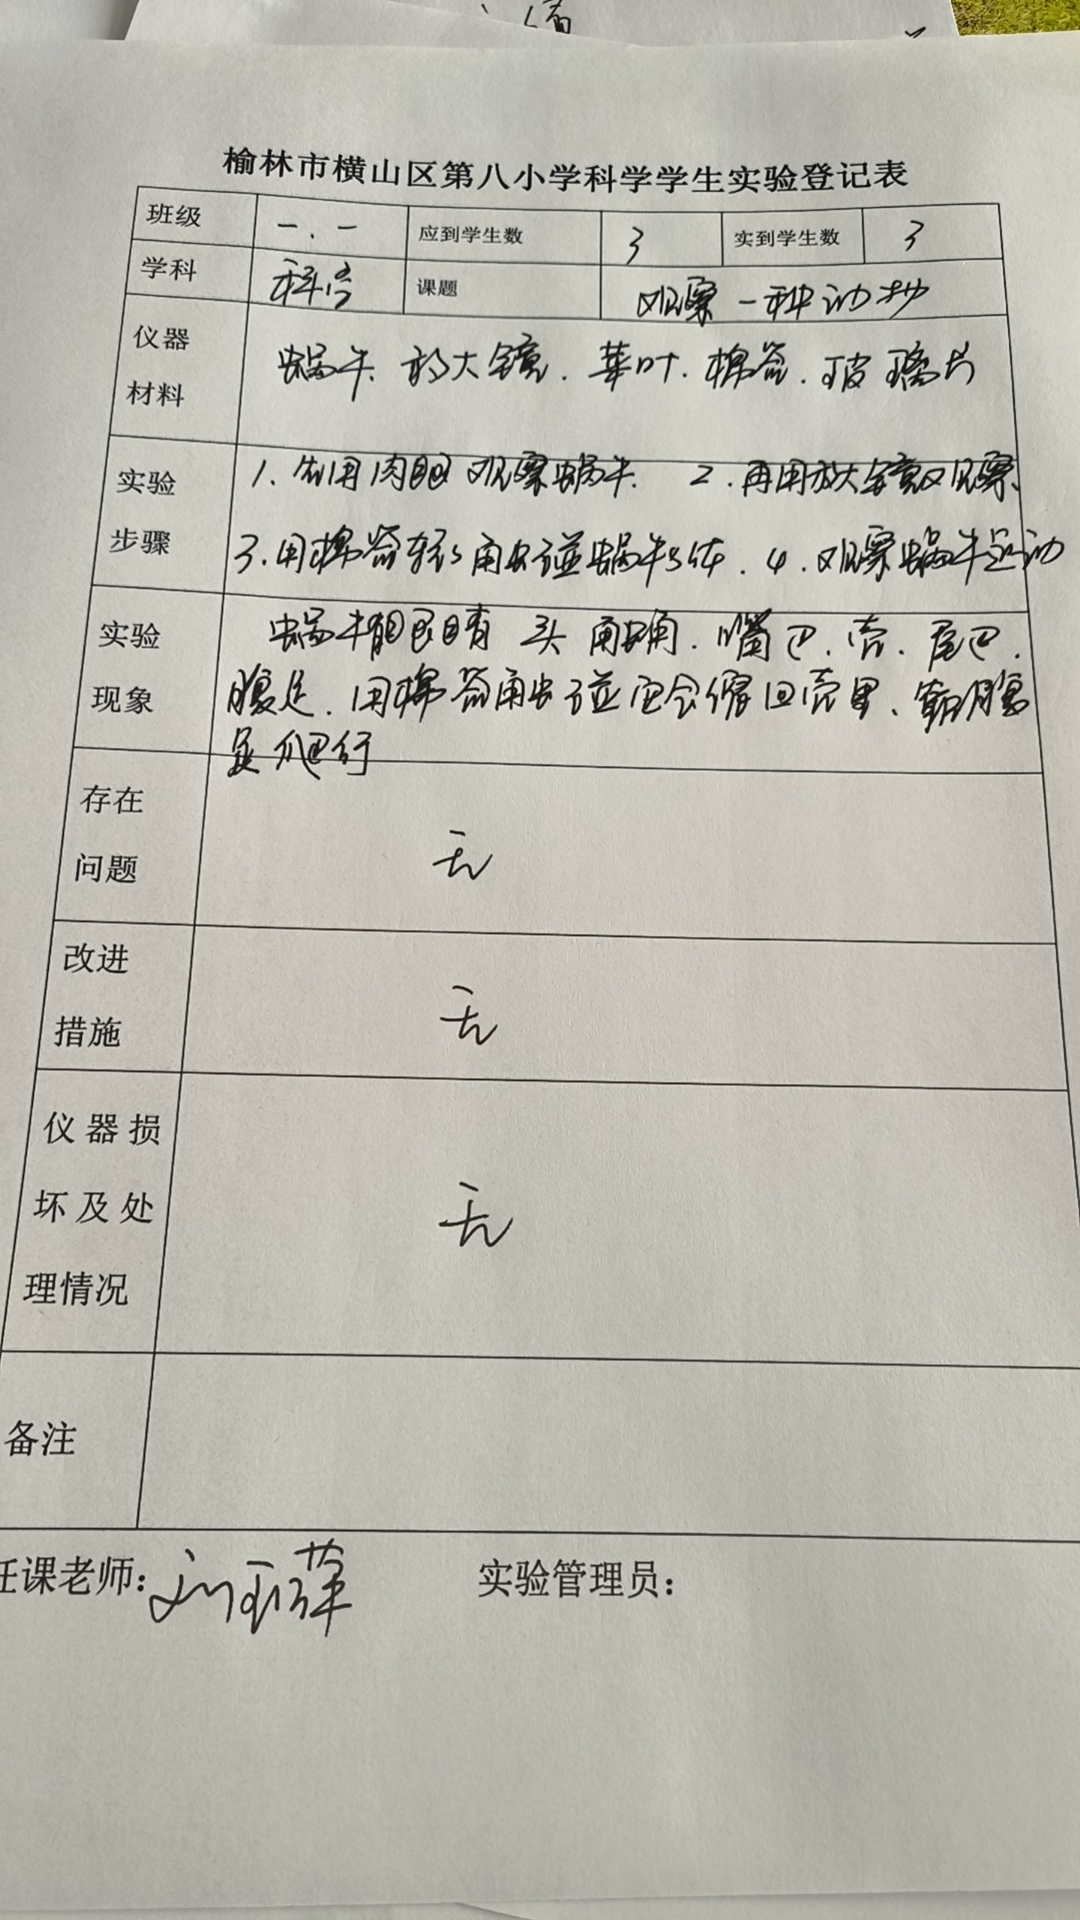 榆林市横山区第八小学科学学生实验登记表
班级 一.一 应到学生数 3 实到学生数 3
学科 科学 课题 观察一种动物
仪器 材料 蜗牛、放大镜、菜叶、棉签、玻璃片
实验 1、先用肉眼观察蜗牛、 2、再用放大镜观察、
步骤 3、用棉签轻轻触碰蜗牛身体、4、观察蜗牛运动
实验 蜗牛有眼睛 头 触角、嘴巴、壳、尾巴、
现象 腹足、用棉签触碰它会缩回壳里、靠腹
足爬行
存在
问题 无
改进
措施 无
仪器损
坏及处 无
理情况
备注
任课老师: 实验管理员: